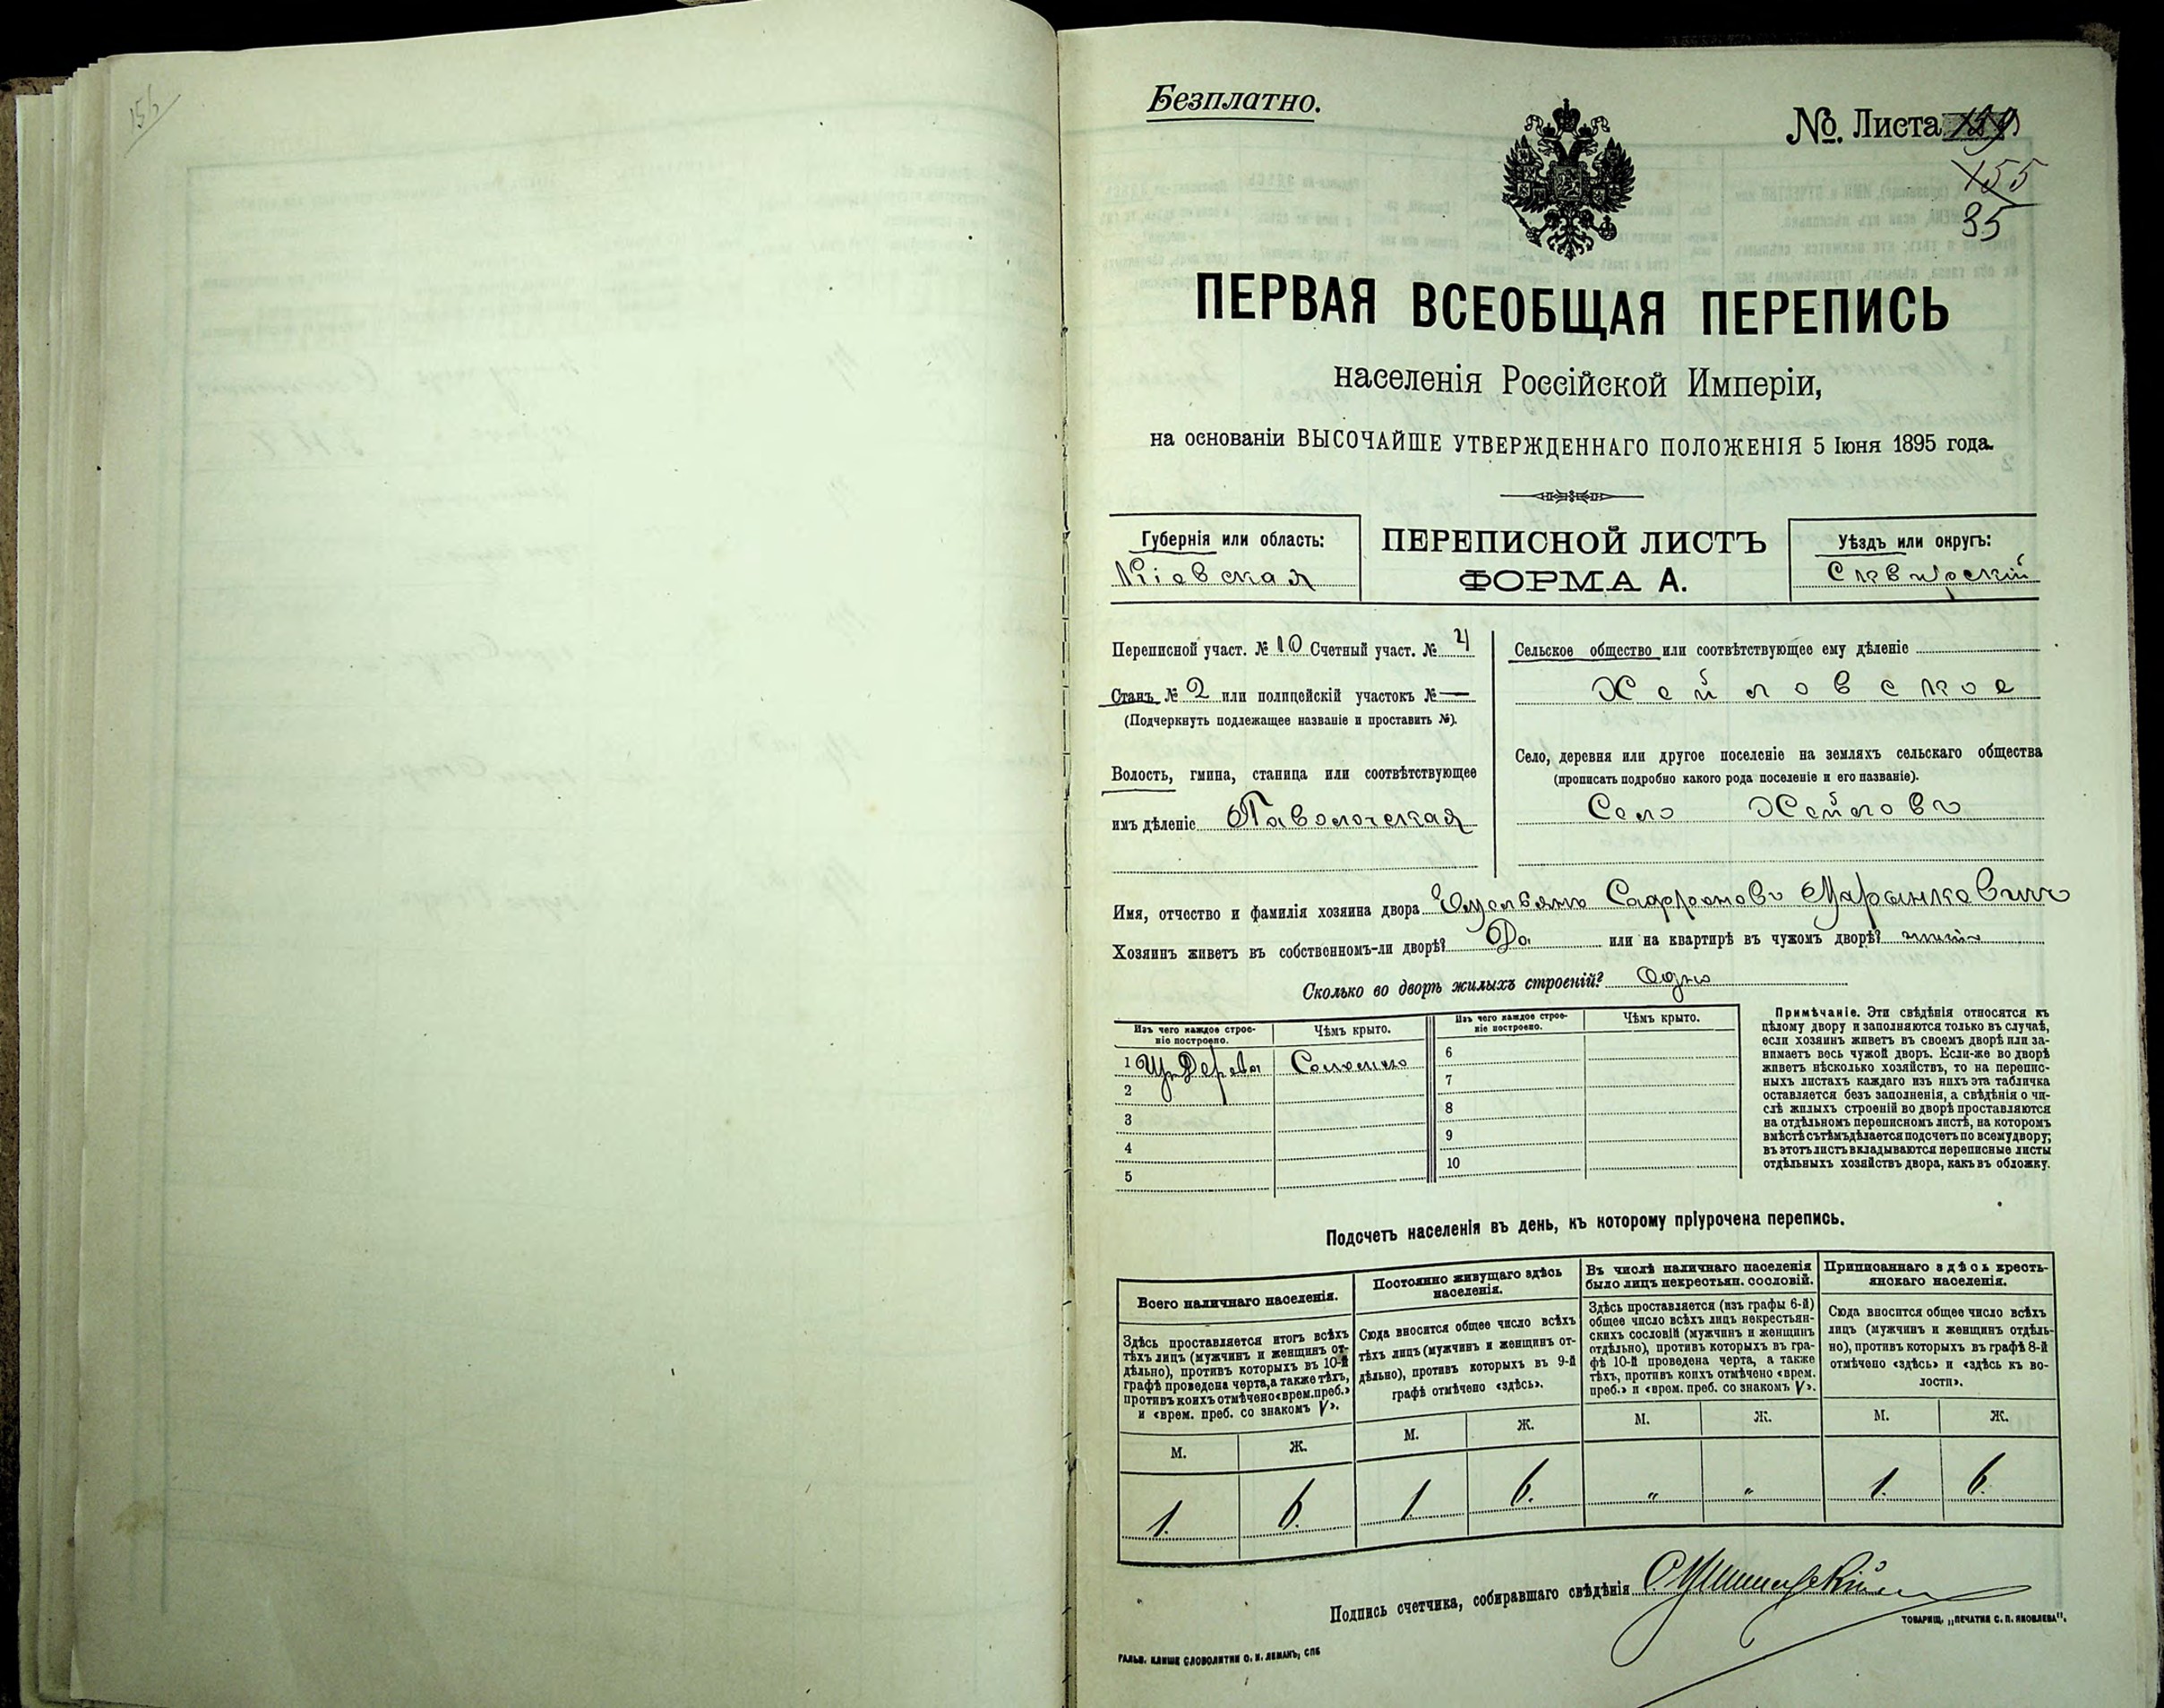 156
Безплатно.
№. Листа 159
155
35
ПЕРВАЯ ВСЕОБЩАЯ ПЕРЕПИСЬ
населенія Россійской Имперіи,
на основаніи ВЫСОЧАЙШЕ УТВЕРЖДЕННАГО ПОЛОЖЕНІЯ 5 Іюня 1895 года.
Губернія или область:
Кіевская
ПЕРЕПИСНОЙ ЛИСТЪ
ФОРМА А.
Уѣздъ или округъ:
Сквирскій
Переписной участ. № 10 Счетный участ. № 4
Станъ № 2 или полицейскій участокъ № —
(Подчеркнуть подлежащее названіе и проставить №).
Волость, гмина, станица или соотвѣтствующее
имъ дѣленіе Паволочская
Сельское общество или соотвѣтствующее ему дѣленіе
Хейловское
Село, деревня или другое поселеніе на земляхъ сельскаго общества
(прописать подробно какого рода поселеніе и его названіе).
Село Хейлово
Имя, отчество и фамилія хозяина двора Емельянъ Сафроновъ Маринкевичъ
Хозяинъ живетъ въ собственномъ-ли дворѣ? Да или на квартирѣ въ чужомъ дворѣ?
Сколько во дворѣ жилыхъ строеній? Одно
Изъ чего каждое строе-
ніе построено.
Чѣмъ крыто.
Изъ чего каждое строе-
ніе построено.
Чѣмъ крыто.
1 Изъ Дерева Соломою
2
3
4
5
6
7
8
9
10
Примѣчаніе. Эти свѣдѣнія относятся къ
цѣлому двору и заполняются только въ случаѣ,
если хозяинъ живетъ въ своемъ дворѣ или за-
нимаетъ весь чужой дворъ. Если-же во дворѣ
живетъ нѣсколько хозяйствъ, то на перепис-
ныхъ листахъ каждаго изъ нихъ эта табличка
оставляется безъ заполненія, а свѣдѣнія о чи-
слѣ жилыхъ строеній во дворѣ проставляются
на отдѣльномъ переписномъ листѣ, на которомъ
вмѣстѣ съ тѣмъ дѣлается подсчетъ по всему двору;
въ этотъ листъ вкладываются переписные листы
отдѣльныхъ хозяйствъ двора, какъ въ обложку.
Подсчетъ населенія въ день, къ которому пріурочена перепись.
Всего наличнаго населенія.
Здѣсь проставляется итогъ всѣхъ
тѣхъ лицъ (мужчинъ и женщинъ от-
дѣльно), противъ которыхъ въ 10-й
графѣ проведена черта, а также тѣхъ,
противъ коихъ отмѣчено «врем. преб.»
и «врем. преб. со знакомъ V».
М. Ж.
1. 6.
Постоянно живущаго здѣсь
населенія.
Сюда вносится общее число всѣхъ
тѣхъ лицъ (мужчинъ и женщинъ от-
дѣльно), противъ которыхъ въ 9-й
графѣ отмѣчено «здѣсь».
М. Ж.
1. 6.
Въ числѣ наличнаго населенія
было лицъ некрестьян. сословій.
Здѣсь проставляется (изъ графы 6-й)
общее число всѣхъ лицъ некрестьян-
скихъ сословій (мужчинъ и женщинъ
отдѣльно), противъ которыхъ въ гра-
фѣ 10-й проведена черта, а также
тѣхъ, противъ коихъ отмѣчено «врем.
преб.» и «врем. преб. со знакомъ V».
М. Ж.
" "
Приписаннаго здѣсь кресть-
янскаго населенія.
Сюда вносится общее число всѣхъ
лицъ (мужчинъ и женщинъ отдѣль-
но), противъ которыхъ въ графѣ 8-й
отмѣчено «здѣсь» и «здѣсь къ во-
лости».
М. Ж.
1. 6.
Подпись счетчика, собиравшаго свѣдѣнія
ТОВАРИЩ. „ПЕЧАТНЯ С. П. ЯКОВЛЕВА".
ГАЛЬВ. КЛИШЕ СЛОВОЛИТНИ О. И. ЛЕМАНЪ, СПБ